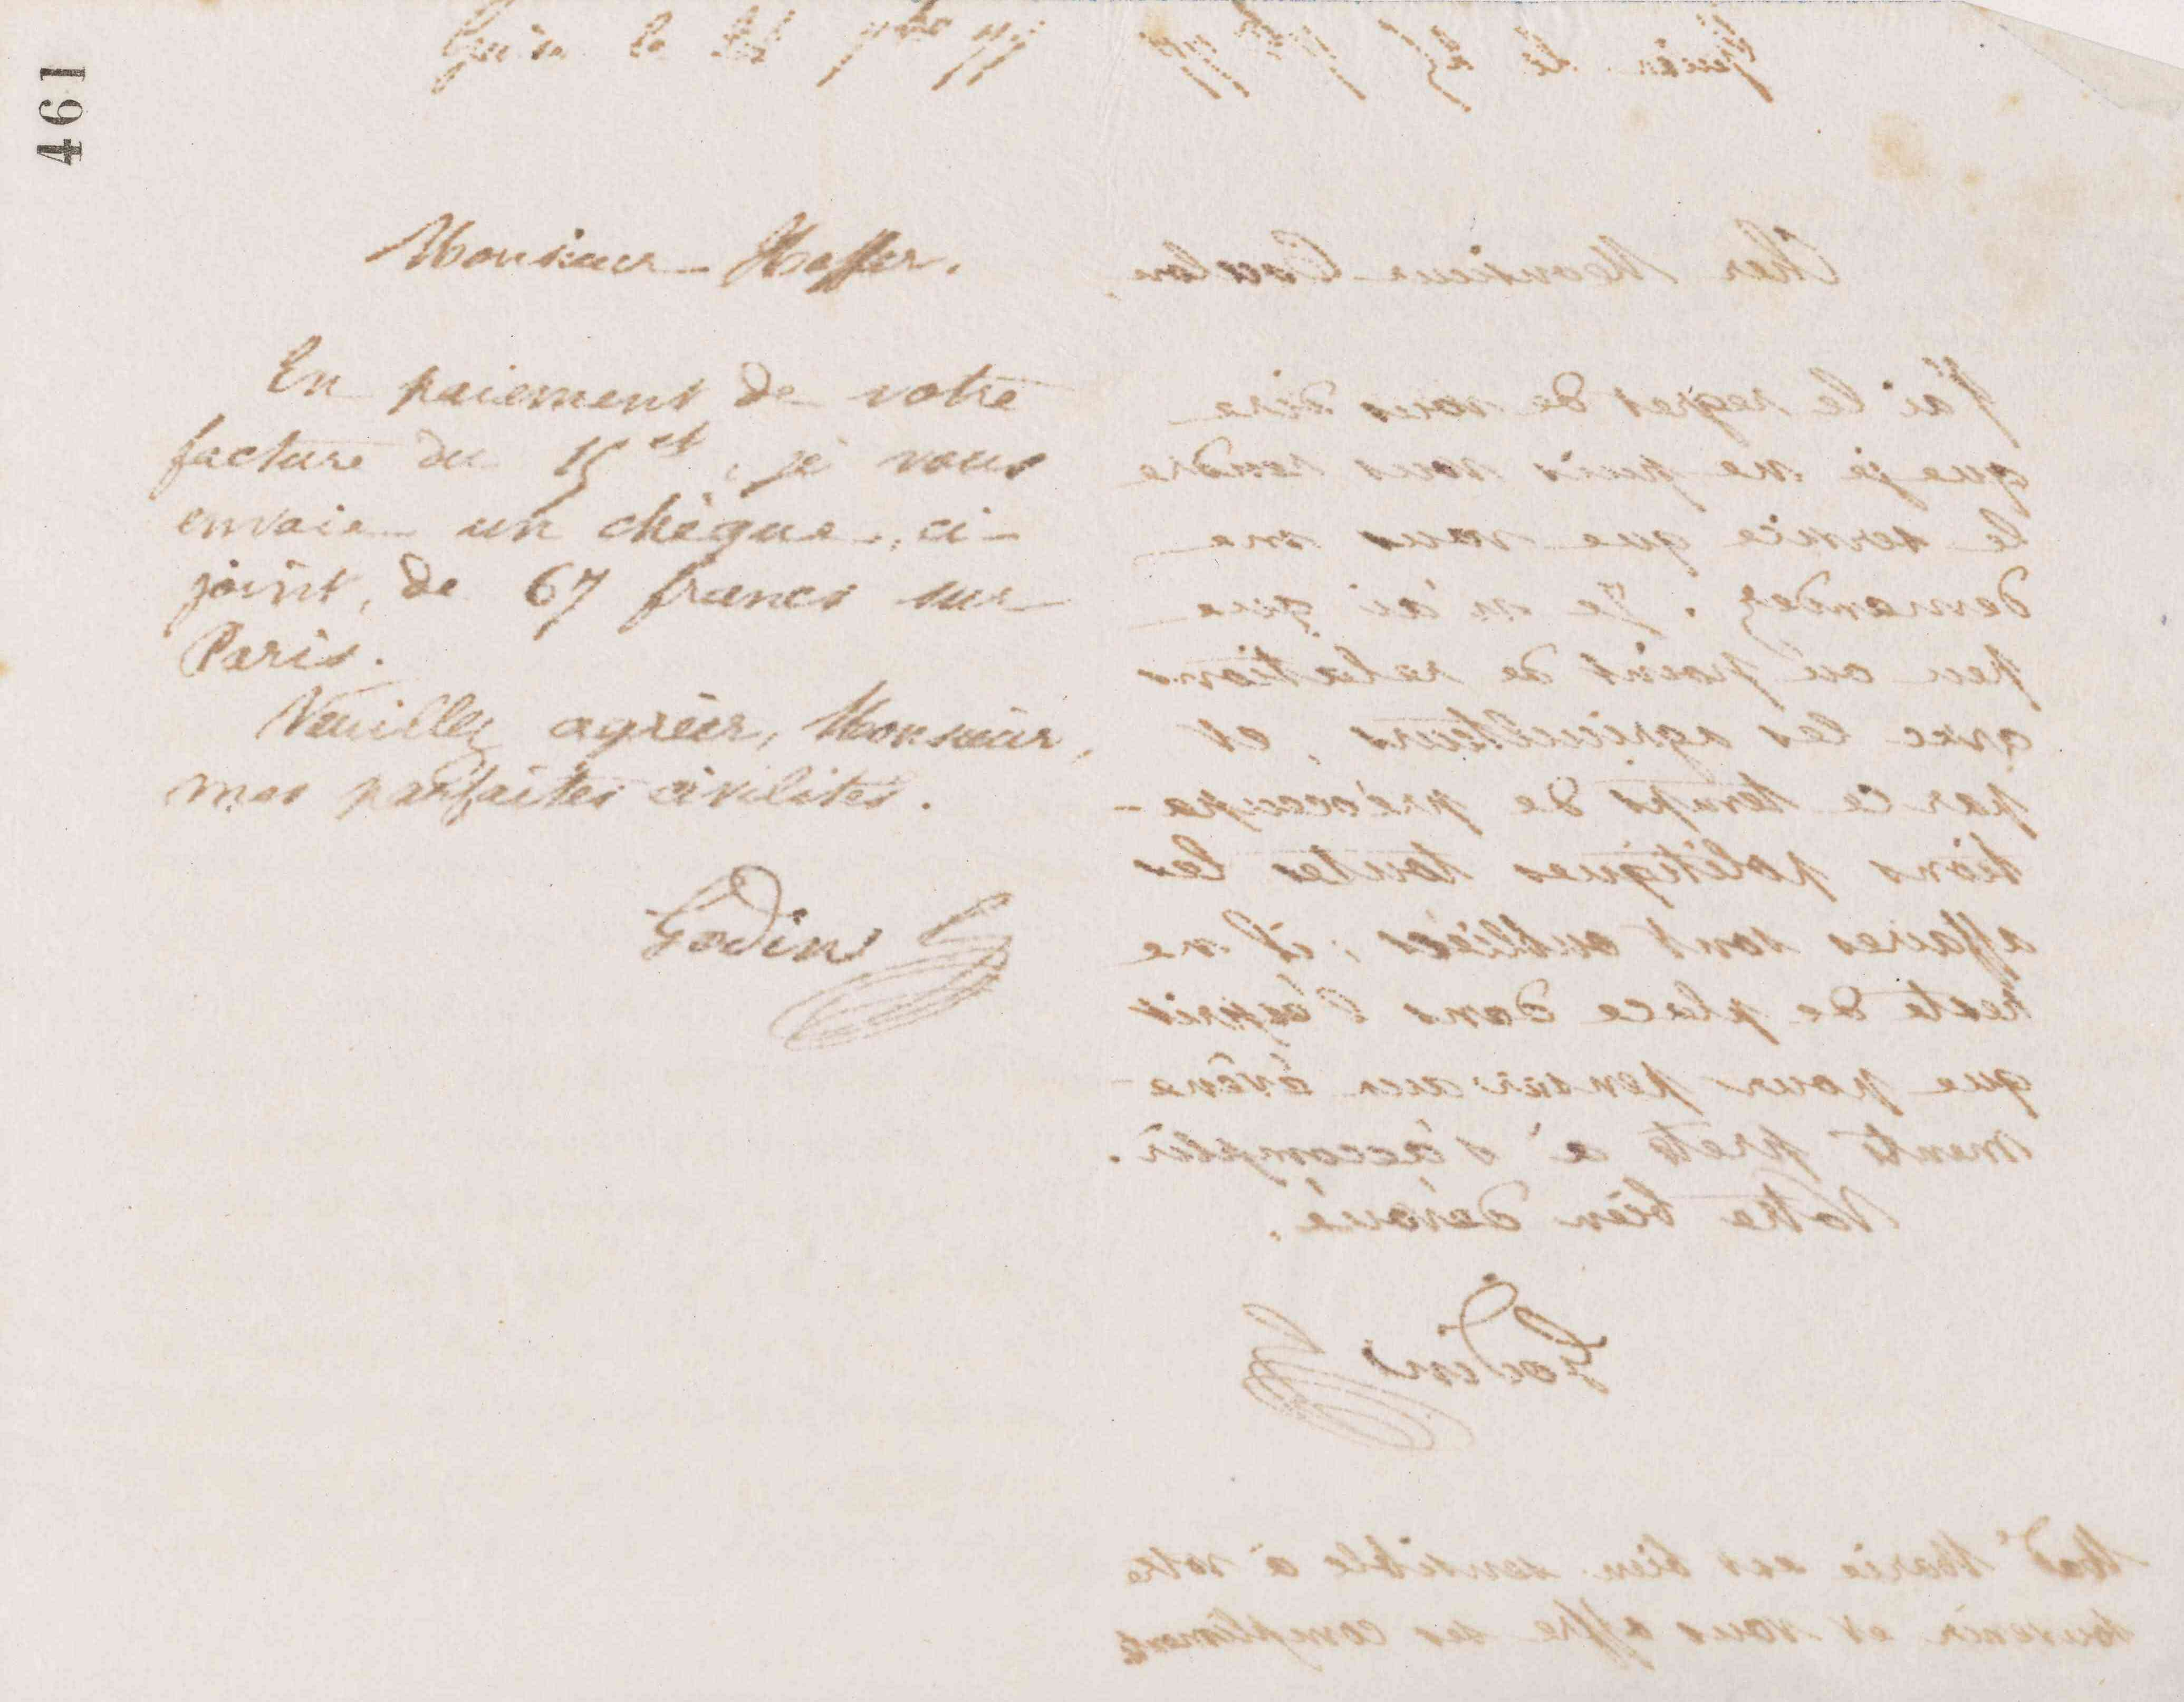 461
Guise le 7bre 77
Monsieur Haffer.
En paiement de votre
facture du 15 et, je vous
envoie un chèque, ci-
joint, de 67 francs sur
Paris.
Veuillez agréer, Monsieur,
mes parfaites civilités.
Godin
Guise le 25 7bre 77
Cher Monsieur
J'ai le regret de vous dire
que je ne puis vous rendre
le service que vous me
demandez. Je n'ai que
peu ou point de relations
avec les agriculteurs, et
par ce temps de préoccupa-
tions politiques toutes les
affaires sont oubliées; il ne
reste de place dans l'esprit
que pour penser aux évène-
ments prêts à s'accomplir.
Votre bien dévoué.
Godin
Made Marie est bien sensible à votre
souvenir et vous offre ses compliments